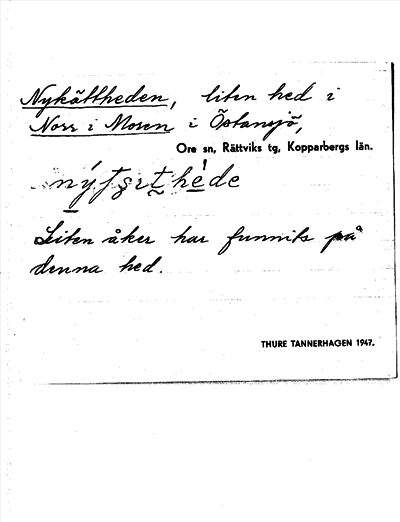 Nykättheden, liten hed i
Norr i Mosen i Östansjö,
Ore sn, Rättviks tg, Kopparbergs län.
Liten åker har funnits på
denna hed.
THURE TANNERHAGEN 1947.